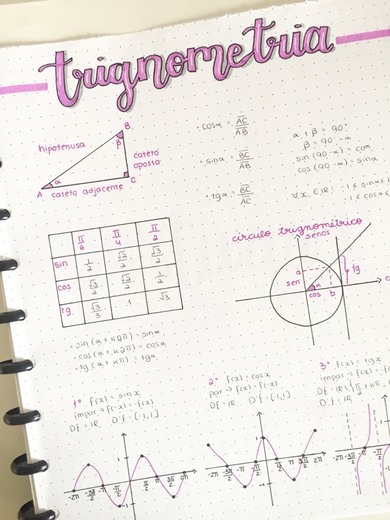 trignometria
hipotenusa
B
β
cateto
oposto
A
α
C
cateto adjacente
• cosα = AC/AB
• sinα = BC/AB
• tgα = BC/AC
α + β = 90°
β = 90 - α
sin(90-α) = cosα
cos(90-α) = sinα
∀x ∈ IR,
π/6 π/4 π/2
sin 1/2 √2/2 √3/2
cos √3/2 √2/2 1/2
tg √3/3 1 √3
círculo trignométrico
senos
a
sen
α
cos
b
tg
• sin(α + k2π) = sinα
• cos(α + k2π) = cosα
• tg(α + kπ) = tgα
1º f(x) = sinx
impar → f(-x) = -f(x)
Df = IR D'f = [-1,1]
2º f(x) = cosx
par → f(x) = f(-x)
Df = IR D'f = [-1,1]
3º f(x) = tgx
impar → f(-x) = -f(x)
1
-2π -3π/2 -π -π/2 π/2 π 3π/2 2π
-1
1
-2π -3π/2 -π -π/2 π/2 π 3π/2 2π
-1